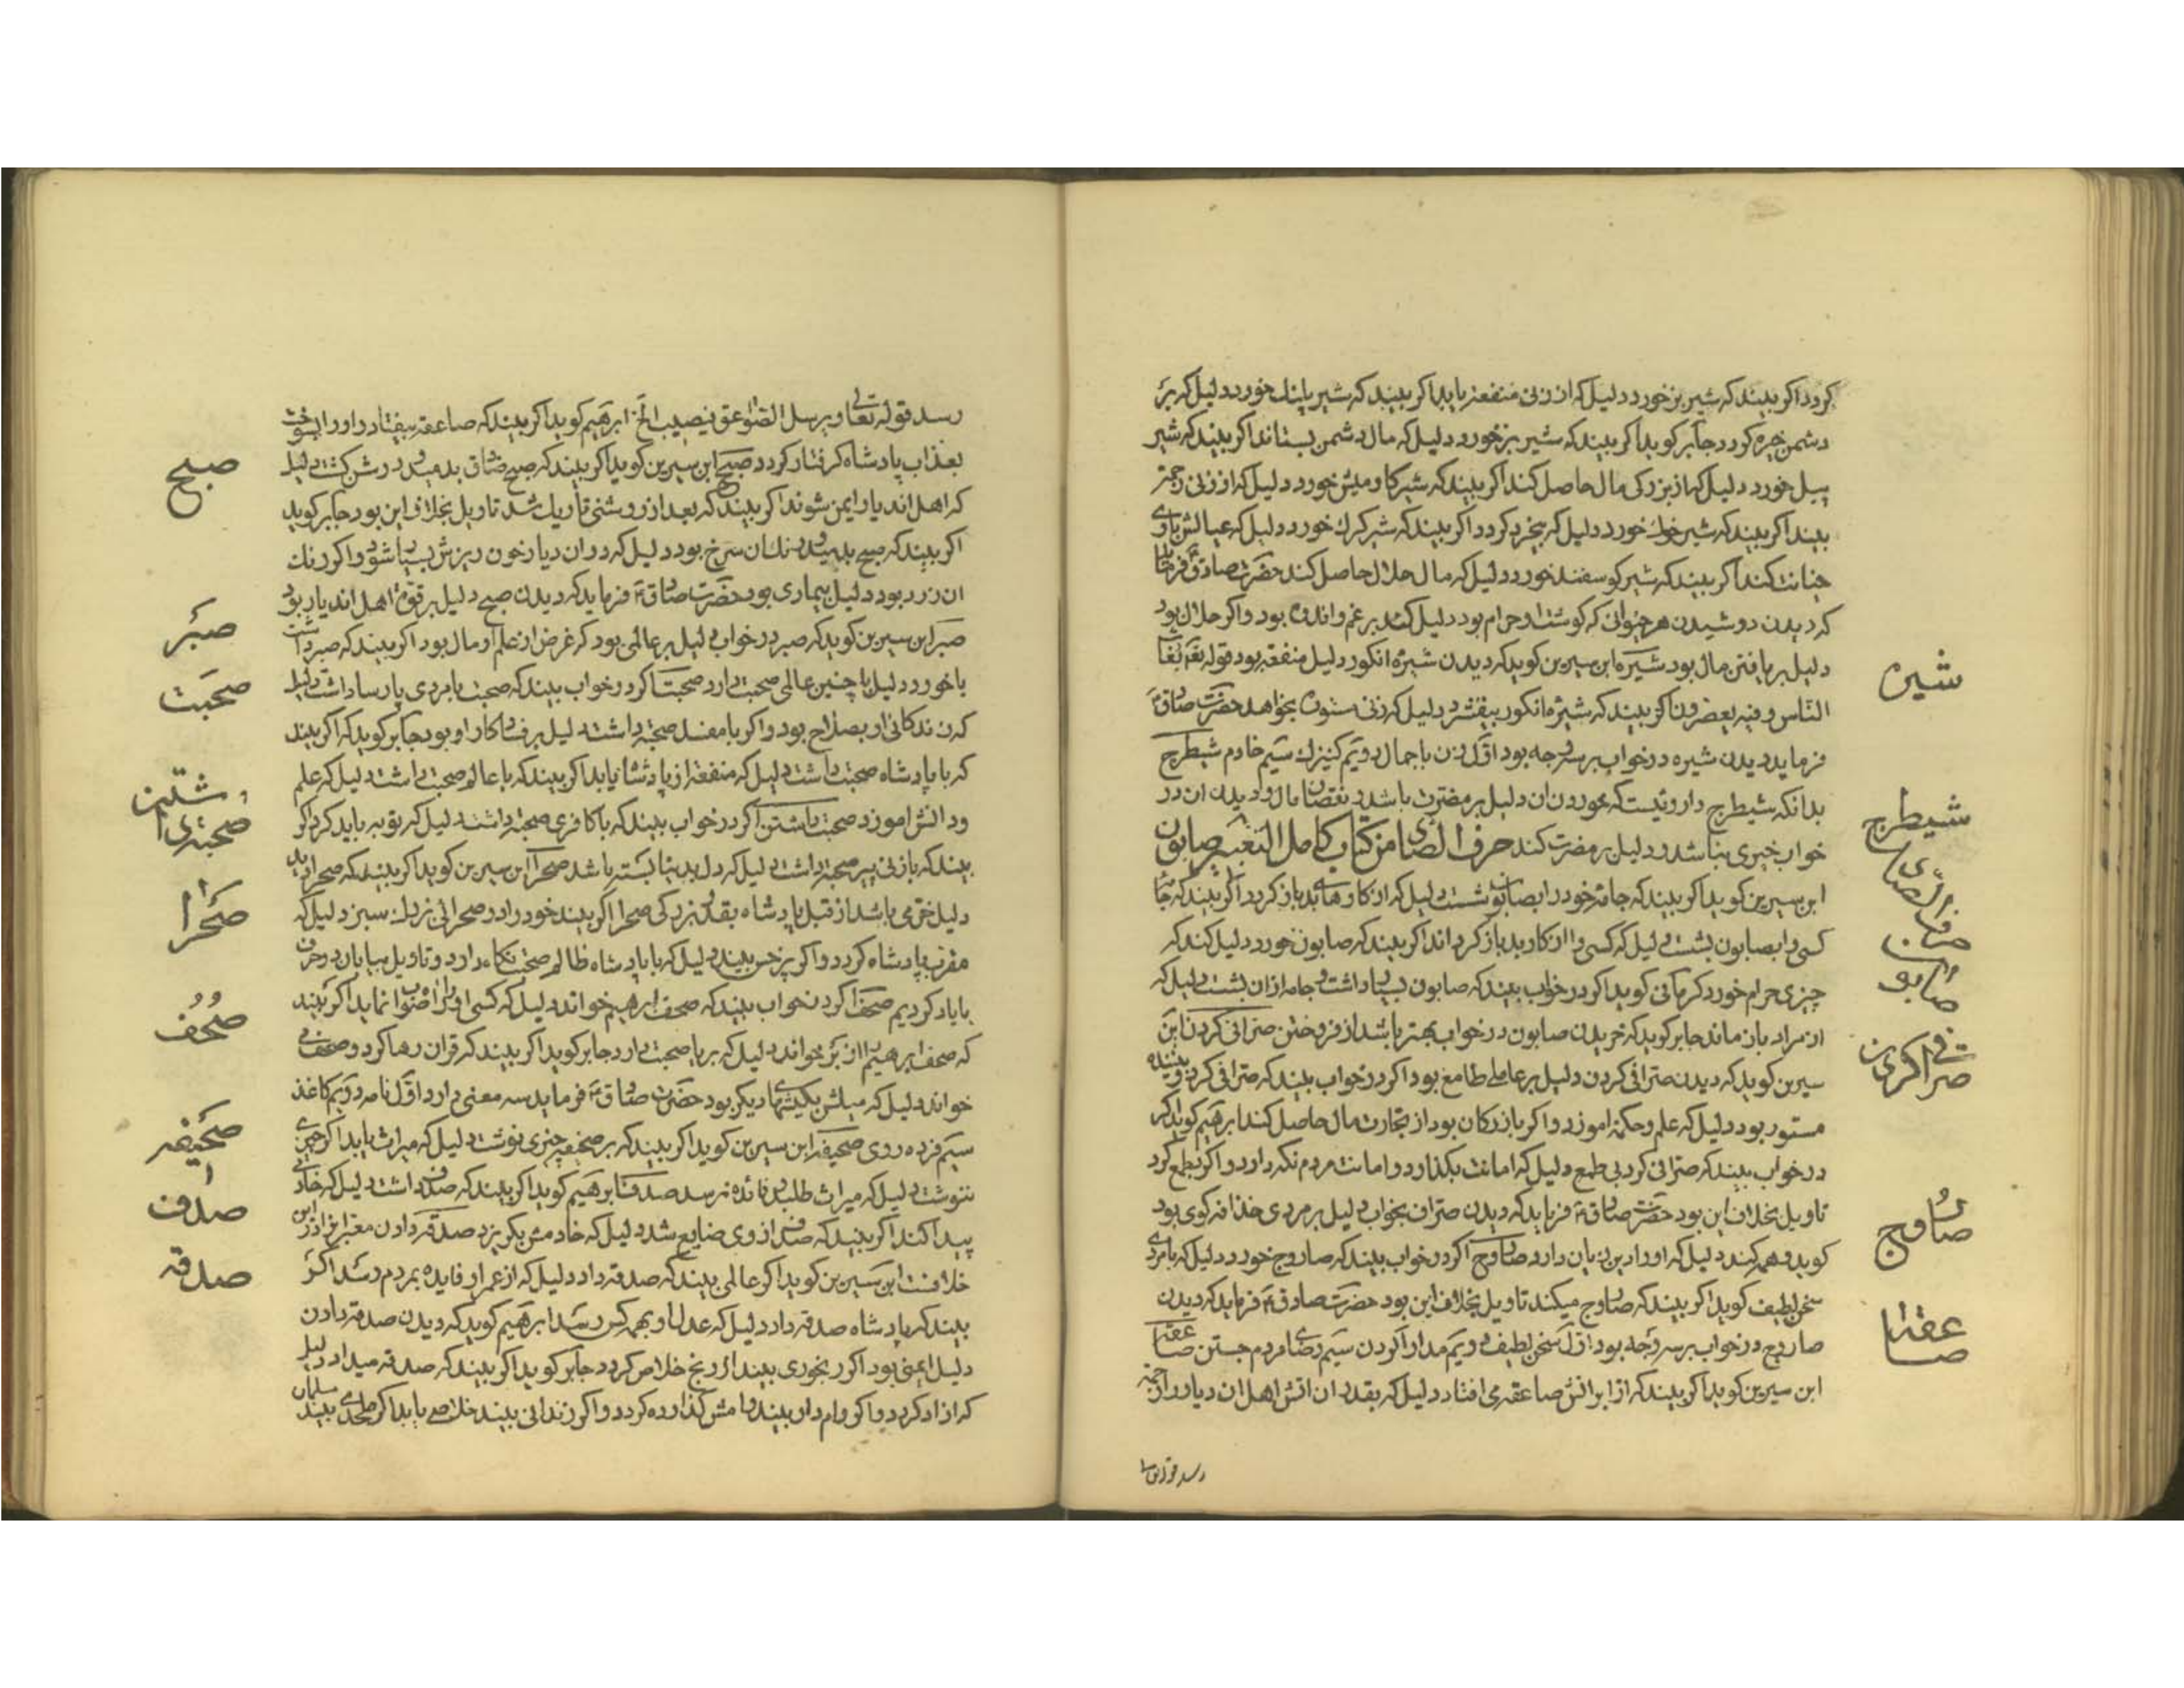 کردد اکر بیند که شیر بز خورد دلیل که از زنی منفعة یابد اکر بیند که شیر پلنك خورد دلیل که بر
دشمن چیره کردد جابر کوید اکر بیند که شیر بز خورد دلیل که مال دشمن بستاند اکر بیند که شیر
پیل خورد دلیل که از بزرکی مال حاصل کند اکر بیند که شیر کاو میش خورد دلیل که از زنی
بیند اکر بیند که شیر خوك خورد دلیل که بیخرد کردد اکر بیند که شیر کرك خورد دلیل که عیالش با وی
خیانت کند اکر بیند که شیر کوسفند خورد دلیل که مال حلال حاصل کند حضرت صادق فرماید
که دیدن دوشیدن هر حیوانی که کوشت او حرام بود دلیل کند بر غم و اندوه بود و اکر حلال بود
دلیل بر یافتن مال بود شیره ابن سیرین کوید که دیدن شیره انکور دلیل منفعة بود قوله تع یغاث
النّاس و فیه یعصرون اکر بیند که شیره انکور بیفشرد دلیل که زنی ستوده بخواهد حضرت صادق
فرماید دیدن شیره در خواب بر سه وجه بود اوّل زن با جمال دویّم کنیزك سیّم خادم شیطرج
بدانکه شیطرج داروئیست که خوردن ان دلیل بر مضرّت باشد و نقصان مال و دیدن ان در
خواب خیری نباشد و دلیل بر مضرت کند حرف الصّاد من کتاب کامل التعبیر صابون
ابن سیرین کوید اکر بیند که جامۀ خود را بصابون شست دلیل که از کارهای بد باز کردد اکر بیند که جامۀ
کسی را بصابون بشست دلیل که کسی را از کار بد باز کرداند اکر بیند که صابون خورد دلیل کند که
چیزی حرام خورد کرمانی کوید اکر در خواب بیند که صابون بسیار داشت و جامه ازان بشست دلیل که
از مراد باز ماند جابر کوید که خریدن صابون در خواب بهتر باشد از فروختن صرافی کردن ابن
سیرین کوید که دیدن صرّافی کردن دلیل بر عاملی طامع بود اکر در خواب بیند که صرّافی کرد و بیننده
مستور بود دلیل که علم و حکمة اموزد و اکر بازرکان بود از تجارت مال حاصل کند ابرهیم کوید اکر
در خواب بیند که صرّافی کرد بی طمع دلیل که امانت بکذارد و امانت مردم نکه دارد و اکر بطمع کرد
تاویل بخلاف این بود حضرت صادق فرماید که دیدن صرّاف بخواب دلیل بر مردی
کوید و دلیل که او را دین زیان دارد صاروج اکر در خواب بیند که صاروج خورد دلیل که با مردی
سخن لطیف کوید اکر بیند که صاروج میکند تاویل بخلاف این بود حضرت صادق فرماید که دیدن
صاروج در خواب بر سه وجه بود اوّل سخن لطیف دویّم مدارا کردن سیّم رضای مردم جستن صاعقه
ابن سیرین کوید اکر بیند که از ابر اتش صاعقه می افتاد دلیل که بقدر ان اتش اهل ان دیار را
شیره
شیطرج
صابون
صرافی کردن
صاروج
صاعقه
رسد قوله تعالی و یرسل الصّواعق فیصیب الخ ابرهیم کوید اکر بیند که صاعقه بیفتاد و او را بسوخت
بعذاب پادشاه کرفتار کردد صبح ابن سیرین کوید اکر بیند که صبح صادق بدمید و روشن کشت دلیل
که اهل اندیار ایمن شوند اکر بیند که بعد از روشنی تاریك شد تاویل بخلاف این بود جابر کوید
اکر بیند که صبح بدمید و رنك ان سرخ بود دلیل که در ان دیار خون ریزش بسیار شود و اکر رنك
ان زرد بود دلیل بیماری بود حضرت صادق فرماید که دیدن صبح دلیل بر قوّة اهل اندیار بود
صبر ابن سیرین کوید که صبر در خواب دلیل بر عالمی بود که غرض از علم او مال بود اکر بیند که صبر داشت
یا خورد دلیل با چنین عالمی صحبت دارد صحبت اکر در خواب بیند که صحبت با مردی پارسا داشت دلیل
که زندکانی او بصلاح بود و اکر با مفسد صحبة داشت دلیل بر فساد کار او بود جابر کوید که اکر بیند
که با پادشاه صحبت داشت دلیل که منفعة از پادشاه یابد اکر بیند که با عالم صحبت داشت دلیل که علم
و دانش اموزد صحبت داشتن اکر در خواب بیند که با کافری صحبة داشت دلیل که توبه باید کرد اکر
بیند که با زنی پیر صحبة داشت دلیل که دل بدنیا بسته باشد صحرا ابن سیرین کوید اکر بیند که صحرا دید
دلیل خرّمی باشد از قبل پادشاه بقدر بزرکی صحرا اکر بیند خود را در صحرائی بزرك سبز دلیل که
مقرّب پادشاه کردد و اکر پر خس بیند دلیل که با پادشاه ظالم صحبت دارد و تاویل بیابان در حرف
با یاد کردیم صحف اکر در خواب بیند که صحف ابرهیم خواند دلیل که کسی او را راه صواب نماید اکر بیند
که صحف ابرهیم را از بر خواند دلیل که صحبت دارد جابر کوید اکر بیند که قران رها کرد و صحف
خواند دلیل که میلش بکیشهای دیکر بود حضرت صادق فرماید سه معنی دارد اوّل نامه دویّم کاغذ
سیّم روی صحیفه ابن سیرین کوید اکر بیند که بر صحیفه چیزی نوشت دلیل که میراث یابد اکر چیزی
ننوشت دلیل که میراث طلبد و فائده نرسد صدف ابرهیم کوید اکر بیند که صدف داشت دلیل که خادمی
پیدا کند اکر بیند که صدف از وی ضایع شد دلیل که خادمش بکریزد صدقه دادن معبّرانرا در این
خلافست ابن سیرین کوید اکر عالمی بیند که صدقه داد دلیل که از علم او فایده بمردم رسد اکر
بیند که پادشاه صدقه داد دلیل که عدل او بهمه کس رسد ابرهیم کوید که دیدن صدقه دادن
دلیل ایمنی بود اکر رنجوری بیند از رنج خلاص کردد جابر کوید اکر بیند که صدقه میداد دلیل
که ازاد کردد و اکر وام دار بیند وامش کذارده کردد و اکر زندانی بیند خلاص یابد اکر بیند
صبح
صبر
صحبت
صحرا
صحف
صحیفه
صدف
صدقه